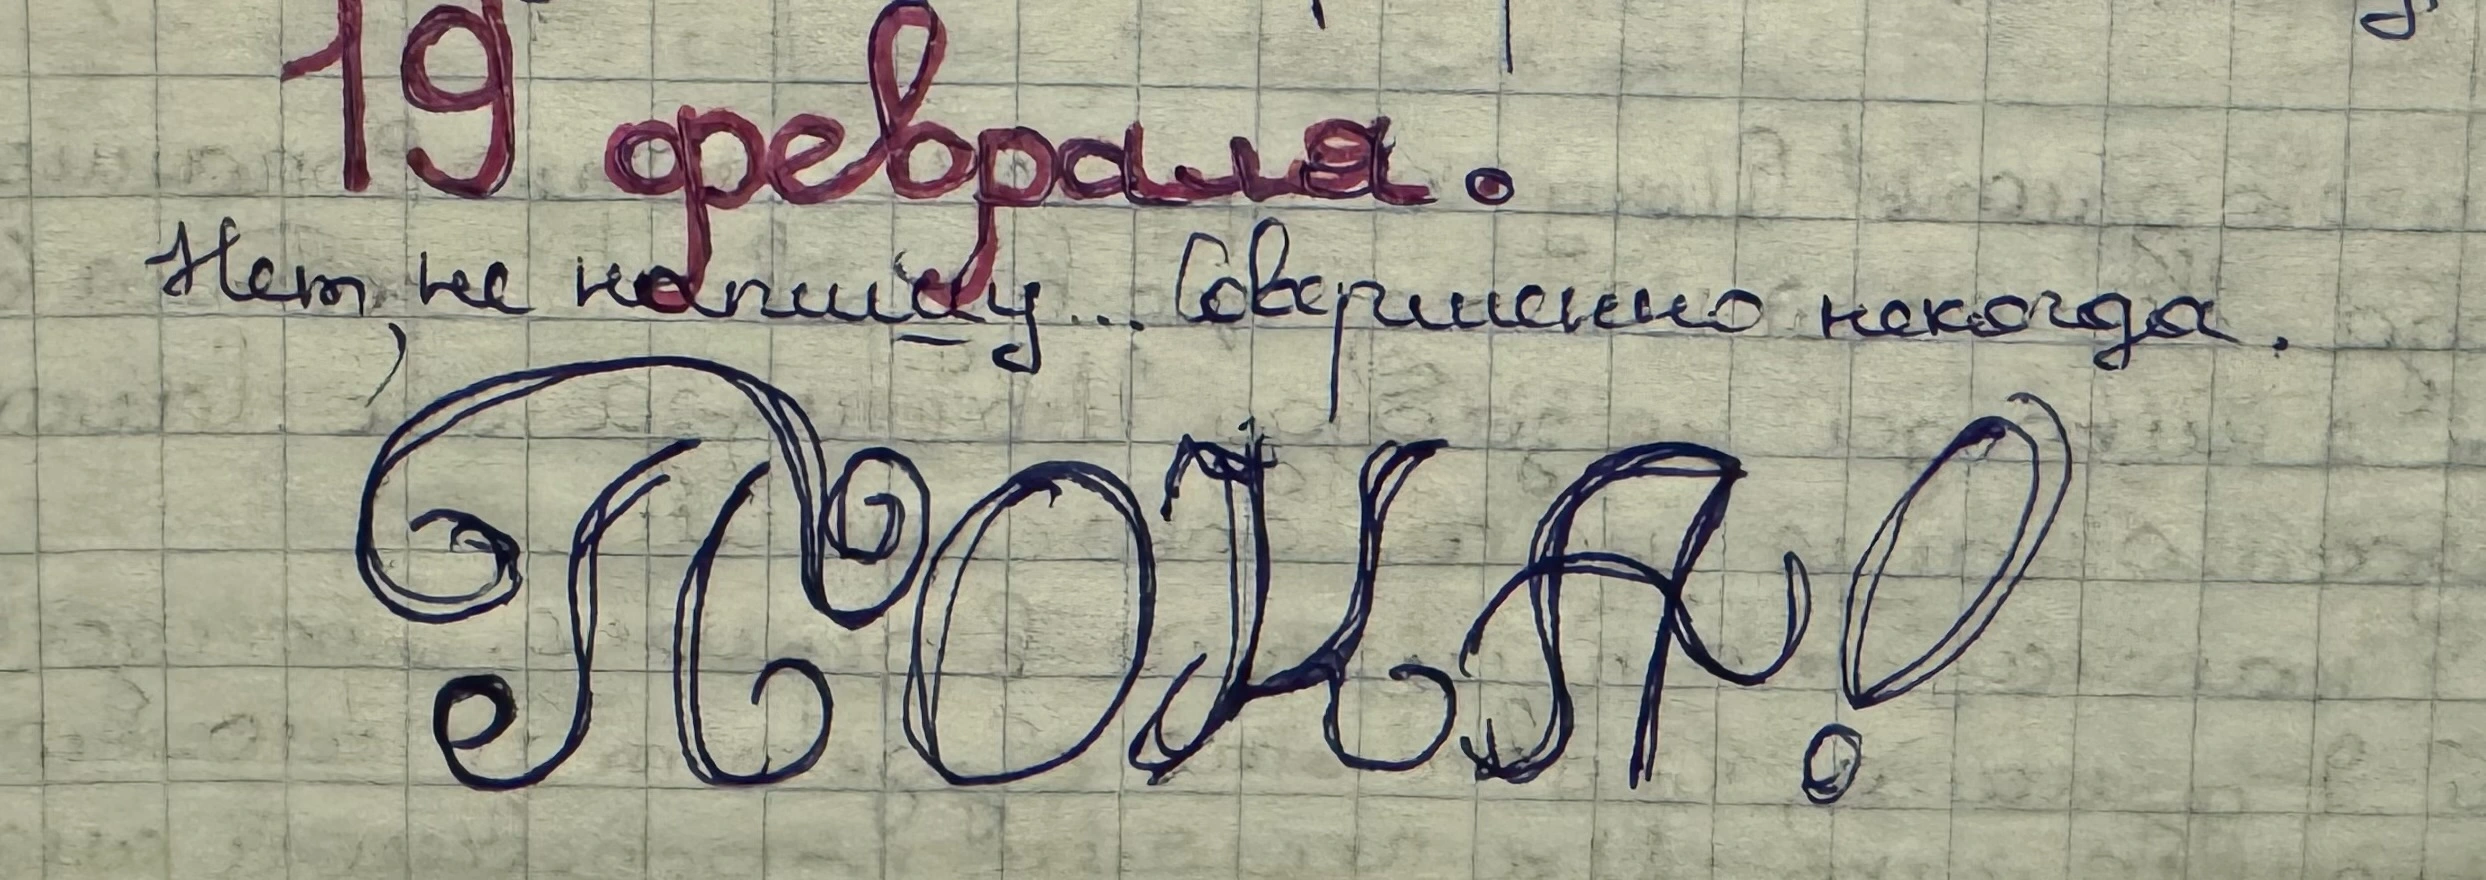 19 февраля.
Нет, не напишу... Совершенно некогда.
Поня!